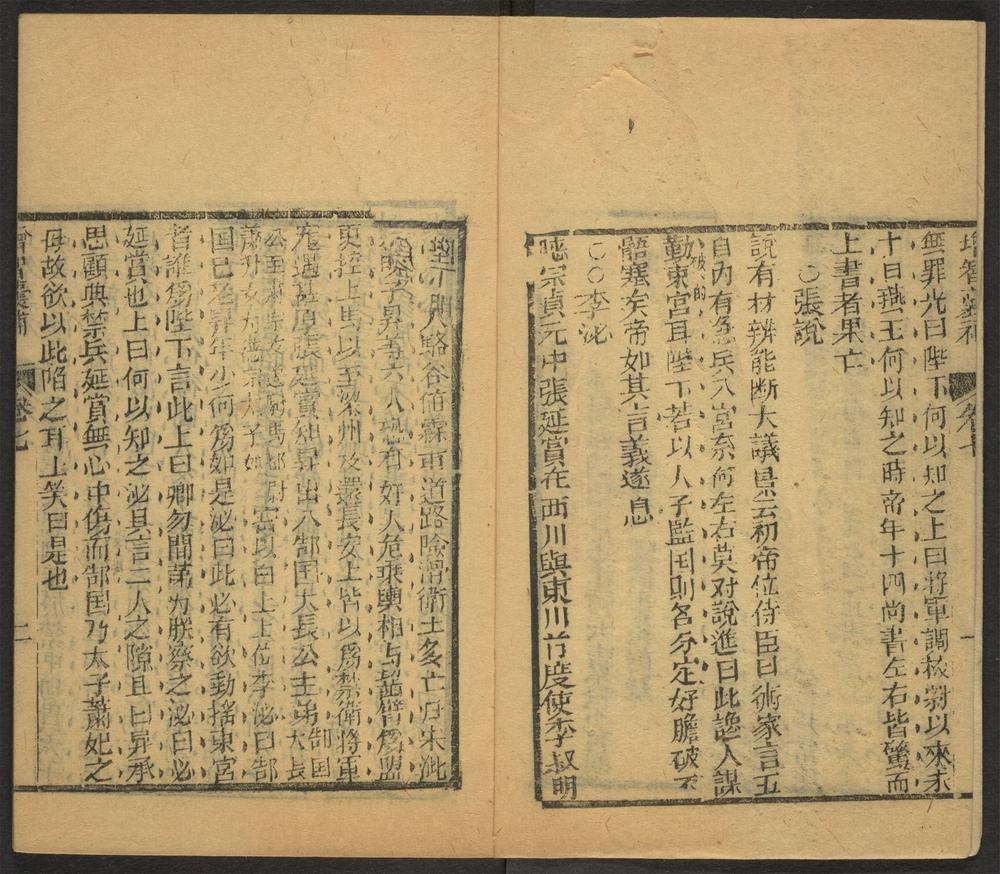 增智囊補 卷七 一
無罪光曰陛下何以知之上曰將軍調校尉以來未
十日燕王何以知之時帝年十四尚書左右皆驚而
上書者果亡
○張說
說有材辨能断大議景云初帝位侍臣曰術家言五
日內有急兵入宮奈何左右莫对說進曰此讒人謀
動東宮耳陛下若以人子監国則名分定奸膽破不
破的
語塞矣帝如其言義遂息
○○李泌
宗貞元中張延賞在西川與東川節度使李叔明
有 入駱谷值霖雨道路險滑衛士多亡歸朱泚
叔明子昇等六人恐有奸人危乘輿相与齧臂為盟
更控上馬以至梁州及還長安上皆以為禁衛將軍
寵遇甚厚張延賞知昇出入郜国大長公主第郜国大長
公主肅宗女 駙馬都尉
蕭升女為德宗太子妃密以白上上位李泌曰郜
国已老昇年少何為如是泌曰此必有欲動搖東宮
者誰為陛下言此上曰卿勿問第为朕察之泌曰必
延賞也上曰何以知之泌具言二人之隙且曰昇承
思顧典禁兵延賞無心中傷而郜国乃太子蕭妃之
母故欲以此陷之耳上笑曰是也
增智囊補 卷七 二